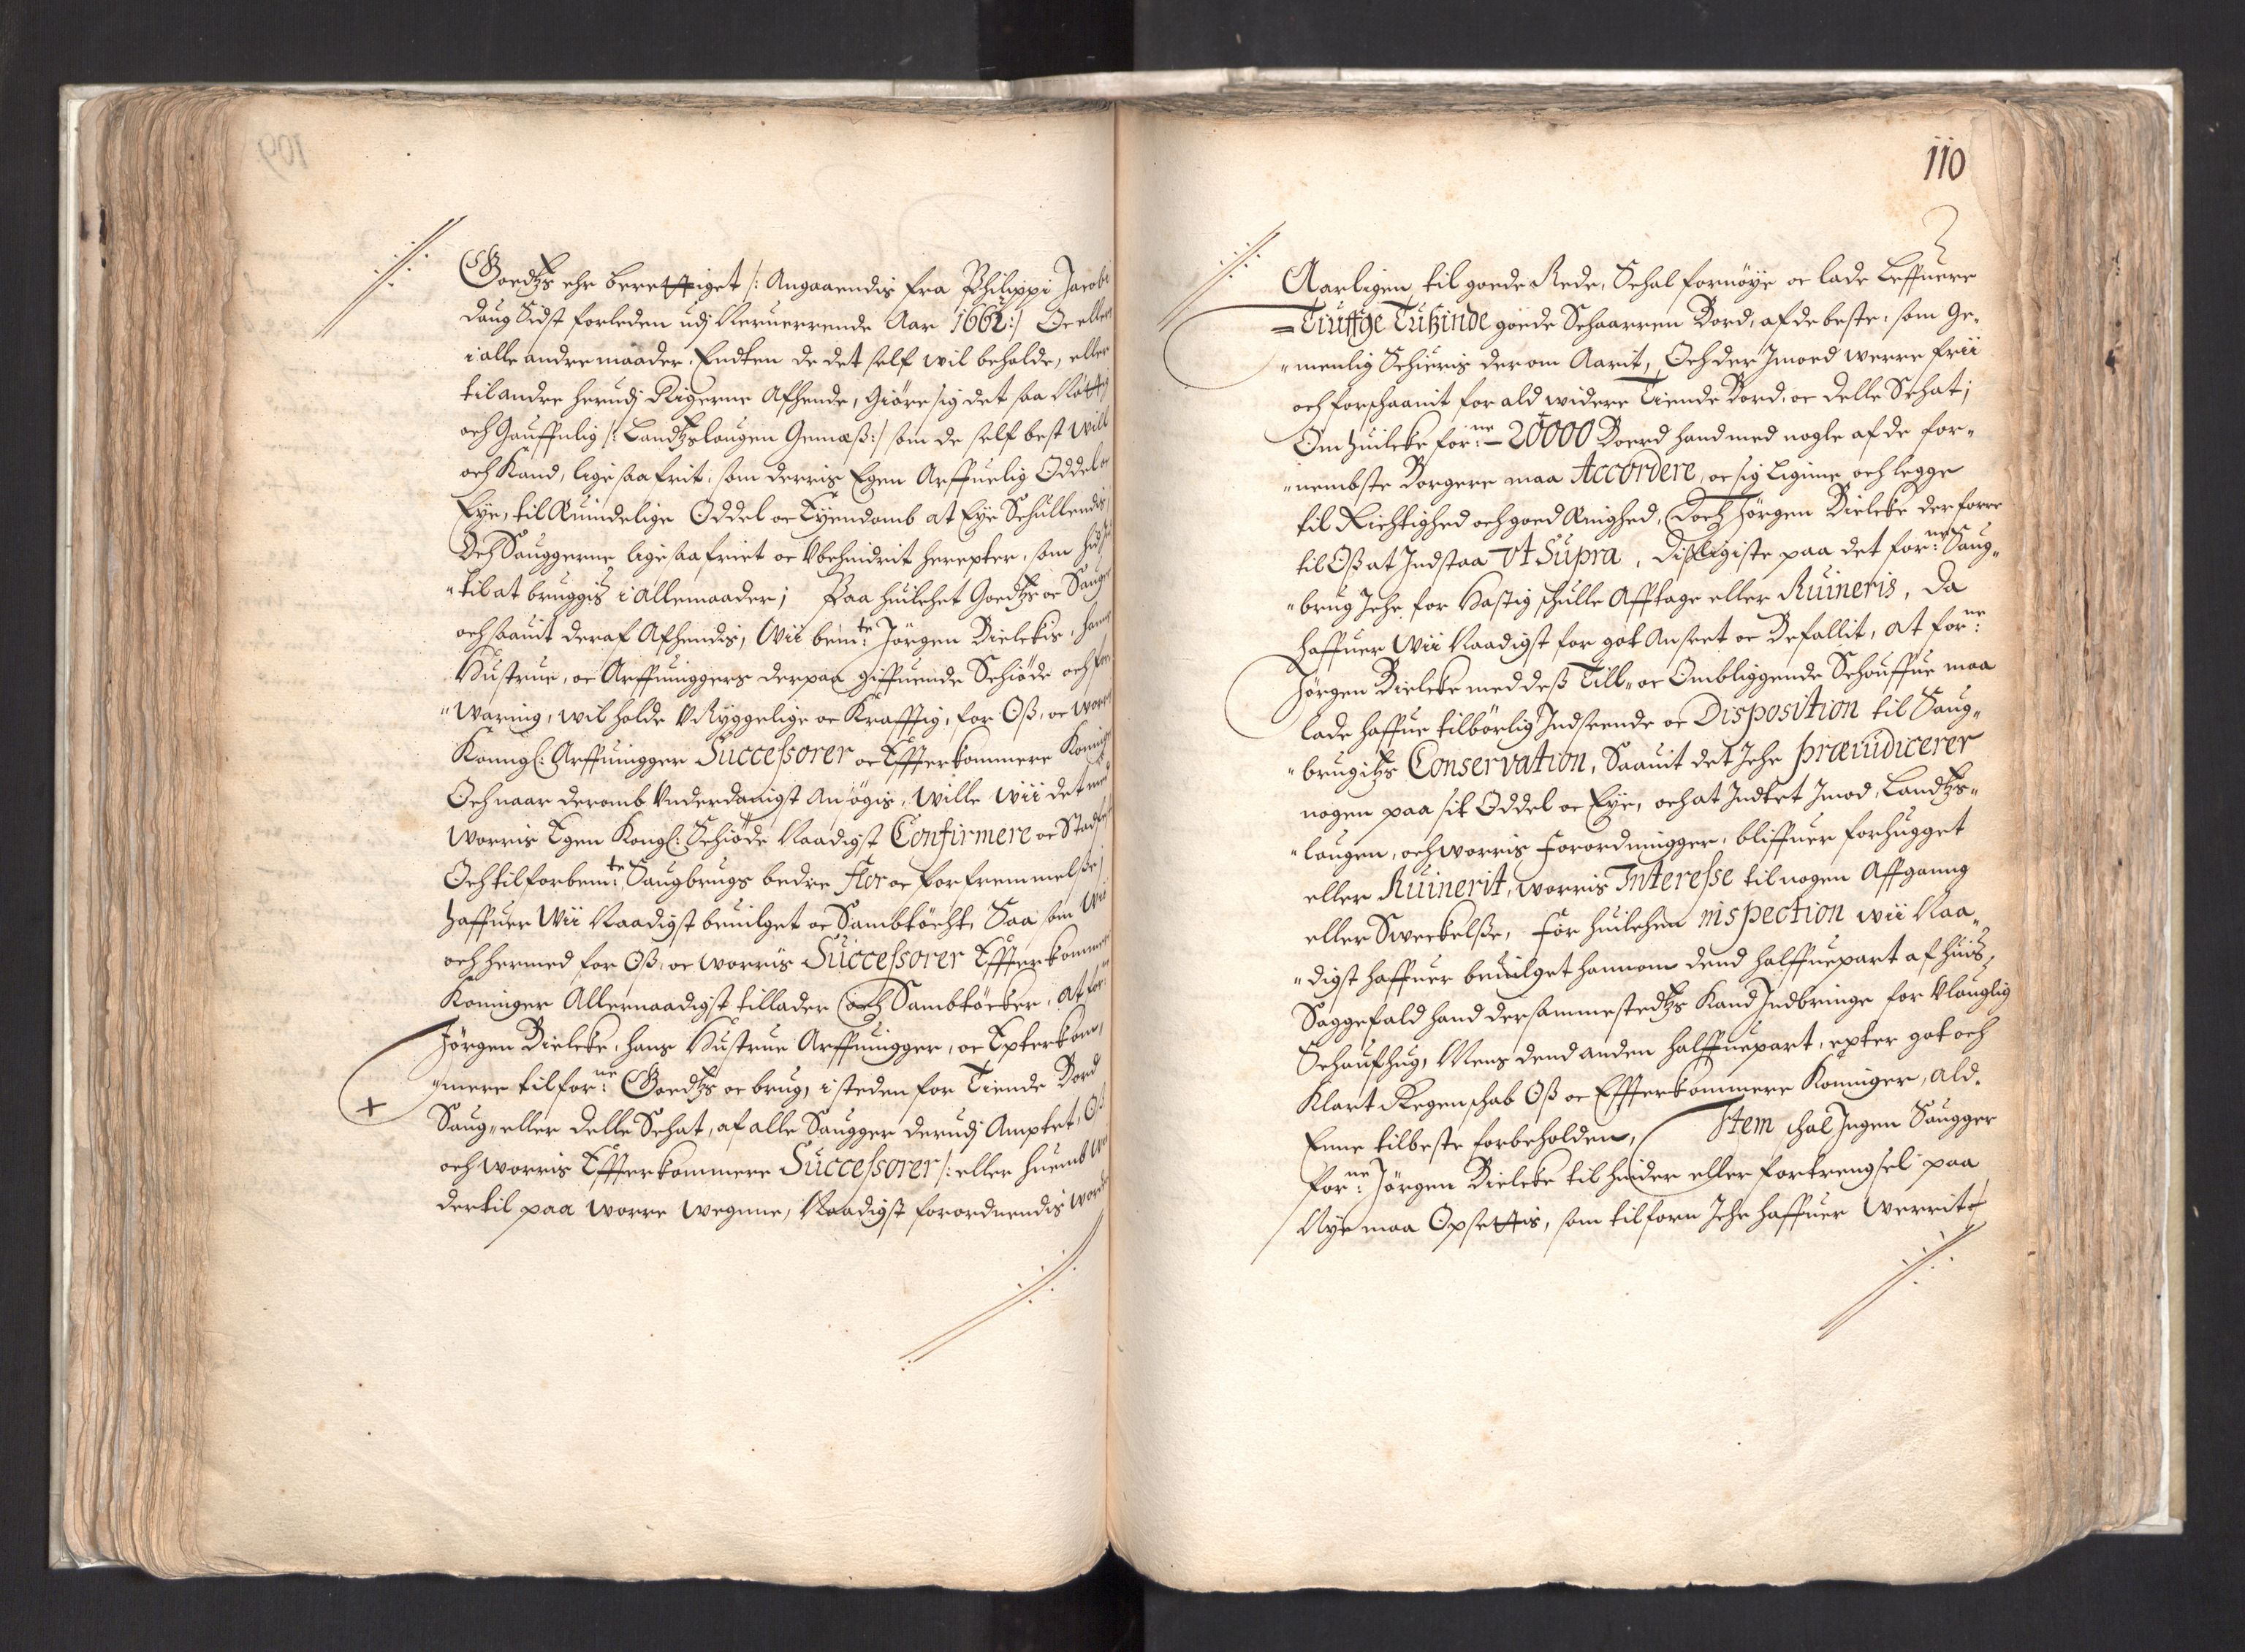 Goedtzs ehr berettiget /: Angaaendis fra Philippi Jacobi
daug Sidst forleden udj Neruerrende Aar 1662:/ Oc ellers
i alle andre maader. Endten de det self wil beholde, eller
til andre herudj Rigerne Afhende, Giöre sig det saa Nöttig
och Gauffnlig /: Landtzslougen Gemæß:/ som de self best will
och Kand, lige saa frit, som derris Egen Arffuelig Oddel oc
Eye, til Æuindelige Oddel oc Eyendomb at Eye Schullendis,
Och Sauggerne lige saa friet oc Vbehindrit herepter, som hid
"til at bruggis i allemaader; Paa huilchet Goedtzs oc Sauge
och saauit deraf Afhendis, Wii bemte: Jörgen Bielckis, hans
Hustrue, oc Arffuinggers derpaa giffuende Schiöde och for-
"waring, wil holde VRyggelige oc Krafftig, for Oß, oc worre
Konngl: Arffuingger Successorer oc Effterkommere Koninger
Och naar deromb Vnderdanigst Ansögis, Wille Wii det med
Worris Egen Kongl: Schiöde Naadigst Confirmere oc Stadfeste
Och til forbemte: Saugbrugs bedre Flor oc forfremmelße;
haffuer Wii Naadigst beuilget oc Sambtöcht, Saa som Wii
och hermed for Oß, oc worris Successorer Effterkommere
Koninger Allernaadigst tillader och Sambtöcker, At for:ne
Jörgen Bielcke, hans Hustrue Arffuingger, oc Epterkom,
"mere til for:ne Goedtzs oc brug, i steden for Tiende Bord
Saug" eller Delle Schat, af alle Saugger derudj Amptet, Oß
och worris Effterkommere Successorer /: eller huemb Wii
dertil paa worre wegnne, Naadigst forordnendis worder
110
Aarligen til goede Rede, Schal fornöye oc lade Leffuere
=Tiuffge Tußinde goede Schaarren Bord, af de beste, som Ge-
"menlig Schieris der om Aarit, Och der Imoed werre frii
och forschaanit for ald widere Tiende Bord, oc Delle Schat;
Om huilcke for:ne – 20000 Boerd hand med nogle af de for-
"nembste Borgere maa Accordere, oc sig Ligne, och legge
til Richtighed och goed Ænighed, Doch Jörgen Bielcke derforre
til Oß at Indstaa Vt Supra, Dißligiste paa det for:ne Saug-
"brug Iche for Hastig schulle Afftage eller Ruineris, Da
haffuer Wii Naadigst for got Anseet oc Befallit, at for:ne
Jörgen Bielcke med deß Till- oc Ombliggende Schouffue maa
lade haffue tilbörlig Indseende oc Disposition til Saug-
"brugitzs Conservation, Saauit det Iche præiudicerer
nogen paa sit Oddel oc Eye, och at Indtet Imod, Landtzs-
"lougen, och worris forordningger, bliffuer forhugget
eller Ruinerit, worris Interesse til nogen Affganng
eller Sweckelße, For huilchen inspection wii Naa-
"digst haffuer beuilget hannom dend halffuepart af huis
Saggefald hand dersammestedtzs Kand Indbringe for Vlouglig
Schoufhug, Mens dend anden halffuepart, epter got och
Klart Regenschab Oß oc Effterkommere Koninger, ald-
Enne tilbeste forbeholden, Item schal Ingen Saugger
for:ne Jörgen Bielcke til hinder eller fortrengsel paa
Nye maa Opsettis, som tilforn Iche haffuer werrit